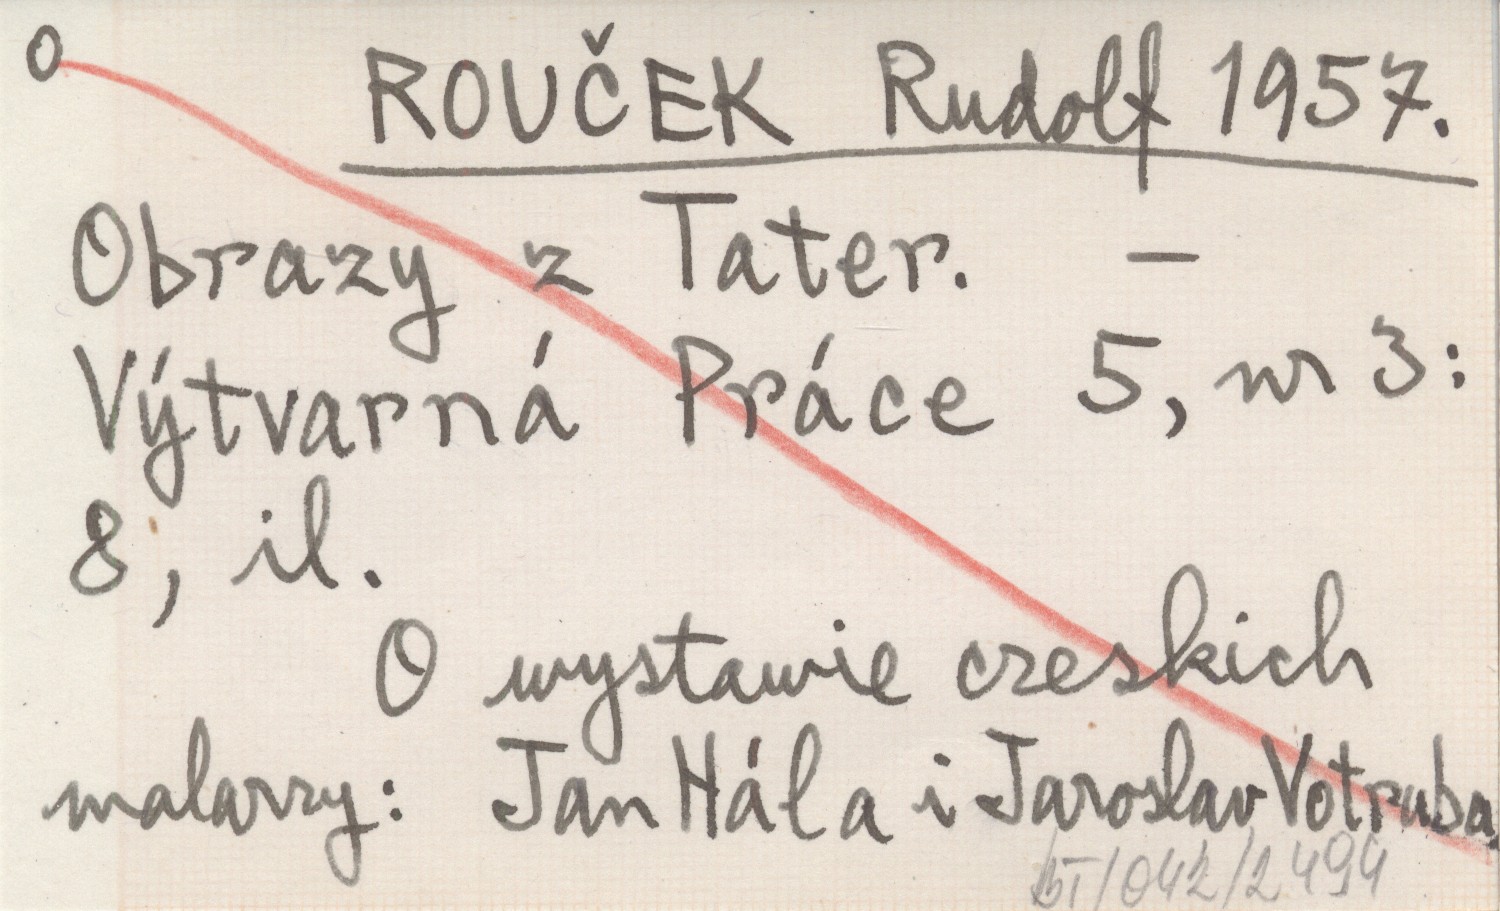 O ROUČEK Rudolf 1957.
Obrazy z Tater. –
Výtvarná Práce 5, nr 3:
8, il.
O wystawie czeskich
malarzy: Jan Hála i Jaroslav Votruba.
BT/042/2494